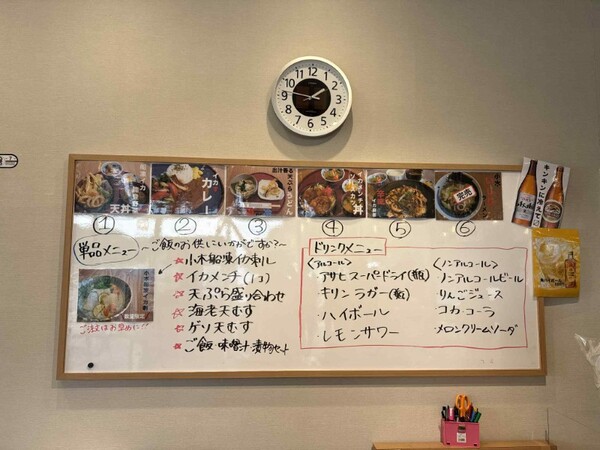 12
1
2
3
4
5
6
7
8
9
10
11
天丼
イカ
カレー
天ぷらうどん
完売
キンキンに冷えてます
Asahi
① ② ③ ④ ⑤ ⑥
単品メニュー
〜ご飯のお供にいかがですか?〜
☆小木船凍イカ刺し
☆イカメンチ(1コ)
☆天ぷら盛り合わせ
☆海老天むす
☆ゲソ天むす
☆ご飯 味噌汁 漬物セット
小木船凍イカ刺
数量限定
ご注文はお早めに!!
ドリンクメニュー
<アルコール>
・アサヒスーパードライ(瓶)
・キリンラガー(瓶)
・ハイボール
・レモンサワー
<ノンアルコール>
・ノンアルコールビール
・りんごジュース
・コカ・コーラ
・メロンクリームソーダ